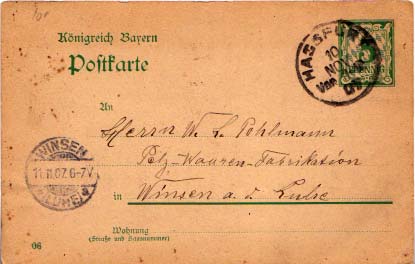 Königreich Bayern
Postkarte
HASSFURT
10
NOV
07
An
Herrn W. L. Pohlmann
Pelz-Waaren-Fabrikation
in Winsen a. d. Luhe
WINSEN
11.11.07.6-7V
(LUHE)
Wohnung
(Straße und Hausnummer)
06